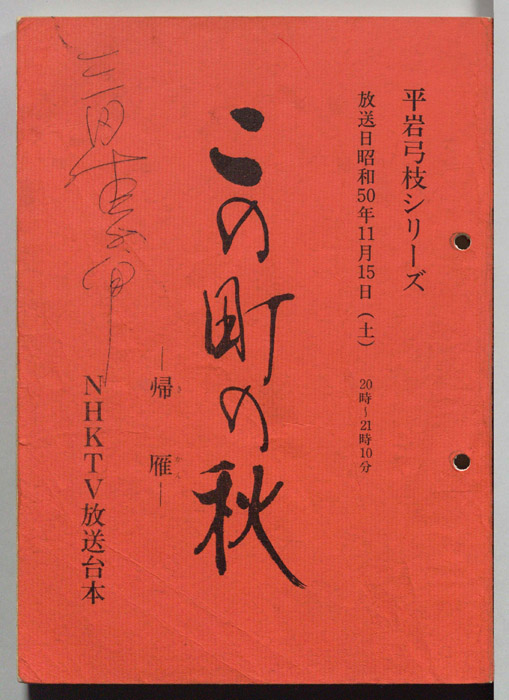 平岩弓枝シリーズ
放送日昭和50年11月15日(土)
20時～21時10分
この町の秋
―帰雁―
き がん
NHKTV放送台本